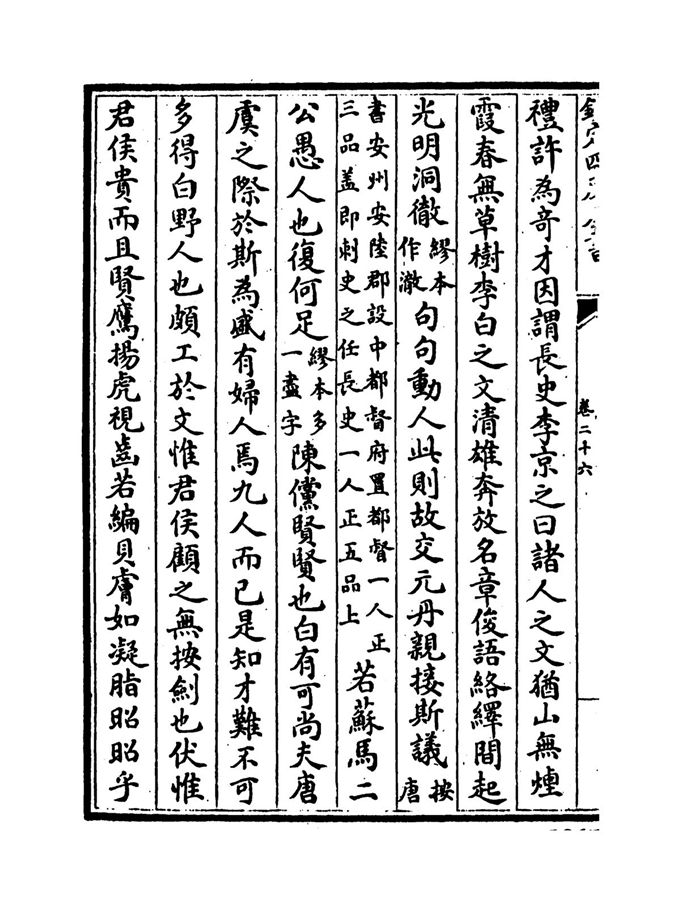 欽定四庫全書
卷二十六
禮許為奇才因謂長史李京之曰諸人之文猶山無煙
霞春無草樹李白之文清雄奔放名章俊語絡繹間起
光明洞徹繆本作澈句句動人此則故交元丹親接斯議按唐
書安州安陸郡設中都督府置都督一人正三品盖即刺史之任長史一人正五品上若蘇馬二
公愚人也復何足繆本多一盡字陳儻賢賢也白有可尚夫唐
虞之際於斯為盛有婦人焉九人而已是知才難不可
多得白野人也頗工於文惟君侯顧之無按劍也伏惟
君侯貴而且賢鷹揚虎視齒若編貝膚如凝脂昭昭乎